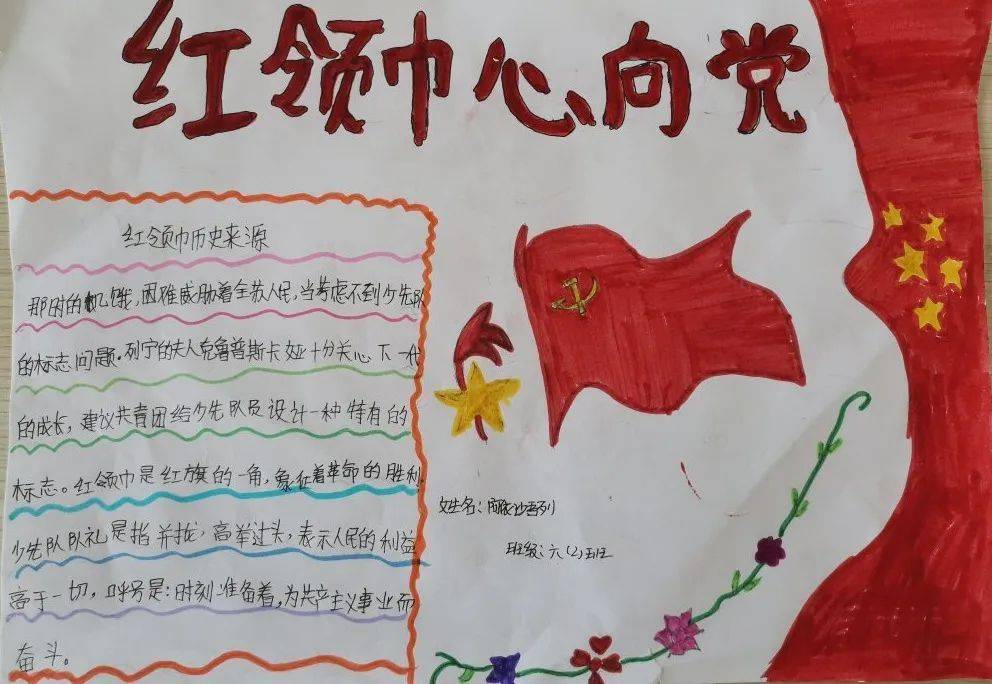 红领巾心向党
红领巾历史来源
那时的饥饿，困难威胁着全苏人民，当考虑不到少先队
的标志问题。列宁的夫人克鲁普斯卡娅十分关心下一代
的成长，建议共青团给少先队员设计一种特有的
标志。红领巾是红旗的一角，象征着革命的胜利，
少先队队礼是指并拢，高举过头，表示人民的利益
高于一切，呼号是：时刻准备着，为共产主义事业而
奋斗。
姓名：阿依
班级：六(2)班